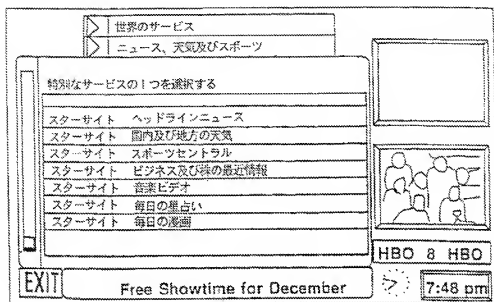 世界のサービス
ニュース、天気及びスポーツ
特別なサービスの1つを選択する
スターサイト ヘッドラインニュース
スターサイト 国内及び地方の天気
スターサイト スポーツセントラル
スターサイト ビジネス及び株の最近情報
スターサイト 音楽ビデオ
スターサイト 毎日の星占い
スターサイト 毎日の漫画
HBO 8 HBO
EXIT Free Showtime for December 7:48 pm